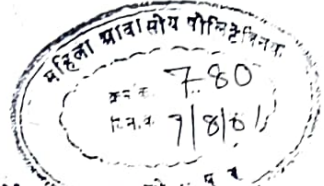 महिला आवासीय पोलिटेक्निक
क्रमांक 780
दिनांक 7/8/01